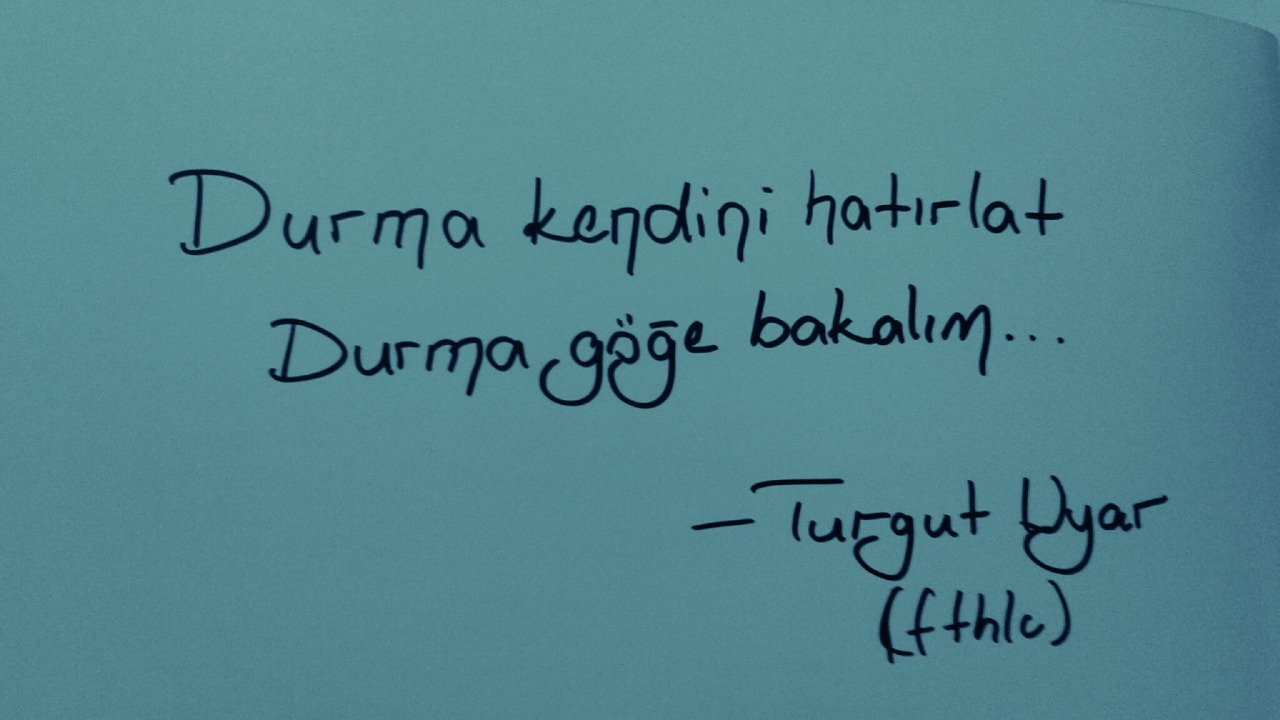 Durma kendini hatırlat
Durma göğe bakalım...
- Turgut Uyar
(fthlc)